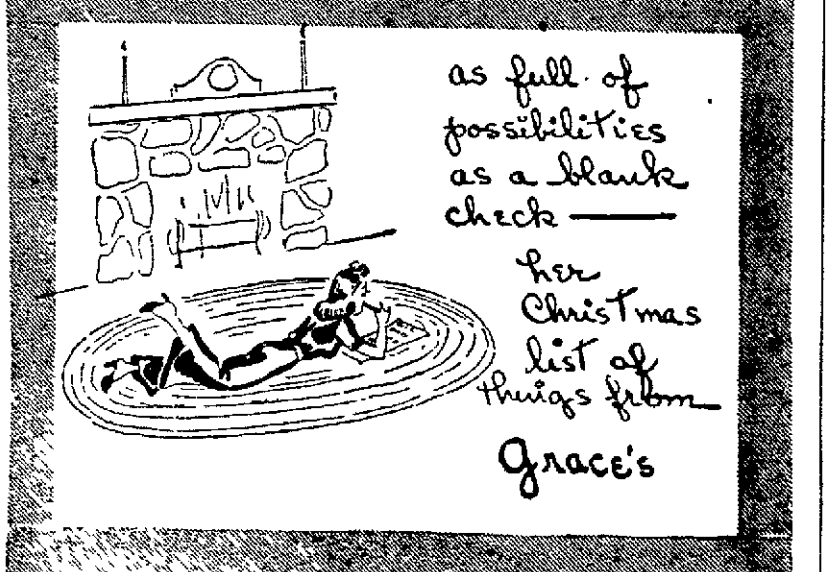 as full of
possibilities
as a blank
check —
her
Christmas
list of
things from
Grace's